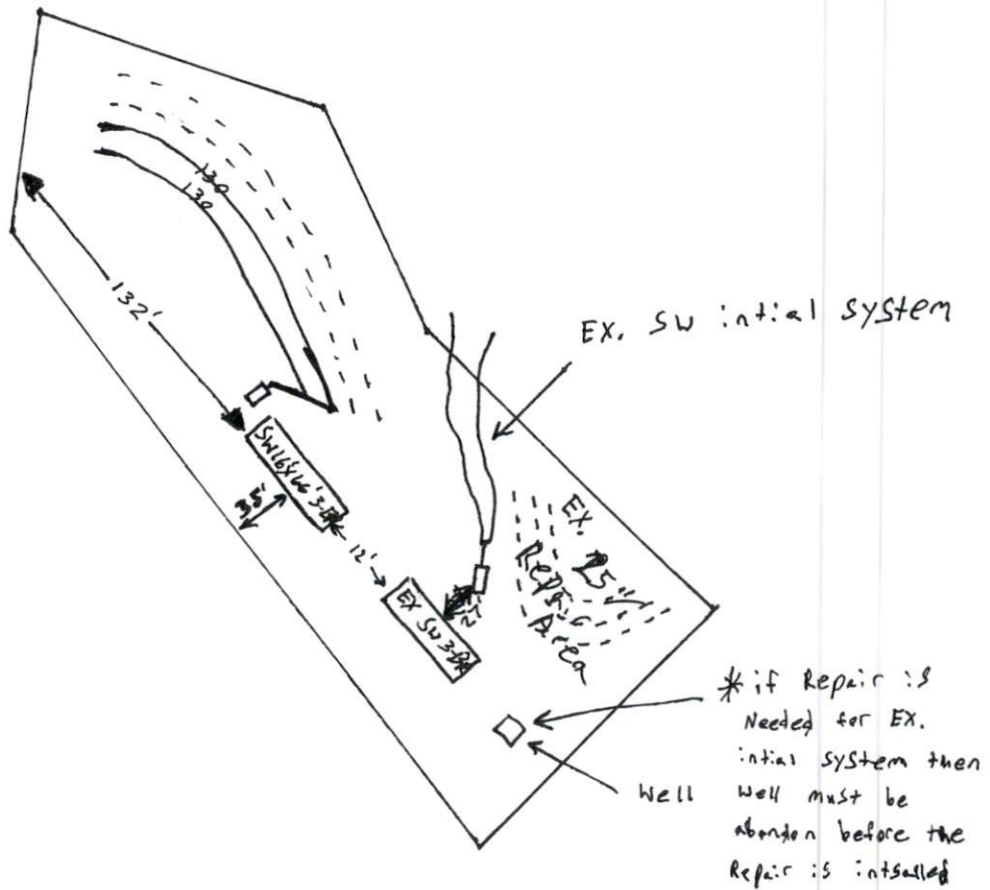 130
130
132'
EX. SW intial system
SW16X66' 3-BR
35'
12'
EX.
25%
Repair
Area
EX SW 3-BR
12'
Well
* if Repair is
Needed for EX.
intial system then
well must be
abandon before the
Repair is intsalled